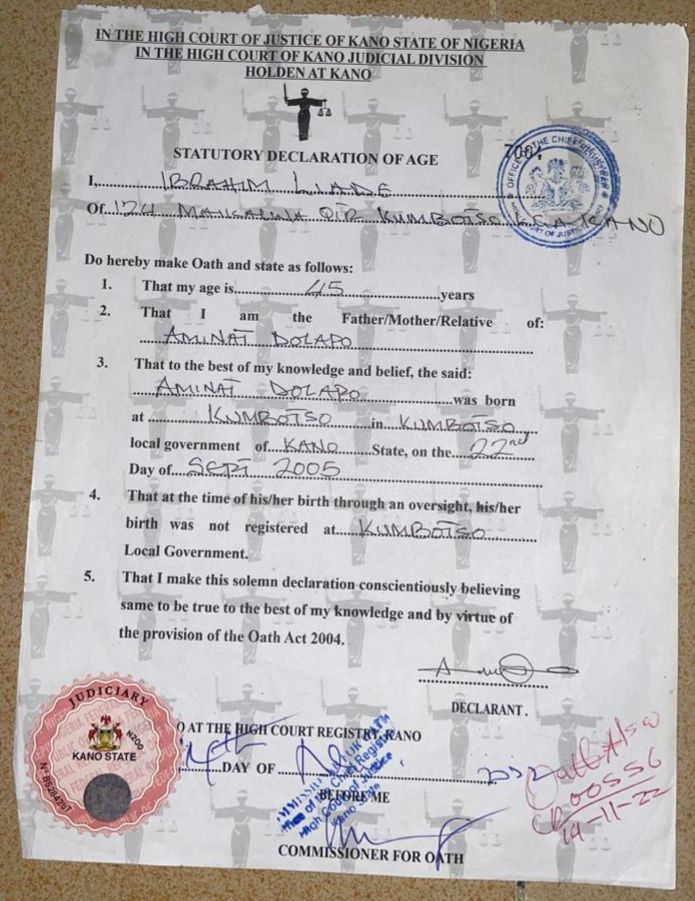 IN THE HIGH COURT OF JUSTICE OF KANO STATE OF NIGERIA
IN THE HIGH COURT OF KANO JUDICIAL DIVISION
HOLDEN AT KANO
STATUTORY DECLARATION OF AGE
OFFICE OF THE CHIEF REGISTRAR
COURT OF JUSTICE
I,.......... IBRAHIM ..........
Of.. 124 ... KUMBOTSO LGA KANO
Do hereby make Oath and state as follows:
1. That my age is.......... 45 ..........years
2. That I am the Father/Mother/Relative of:
AMINAT DOLAPO
3. That to the best of my knowledge and belief, the said:
AMINAT DOLAPO ..........was born
at .......... KUMBOTSO .....in KUMBOTSO
local government of.... KANO .....State, on the.. 22nd
Day of.. SEPT 2005
4. That at the time of his/her birth through an oversight, his/her
birth was not registered at.... KUMBOTSO
Local Government.
5. That I make this solemn declaration conscientiously believing
same to be true to the best of my knowledge and by virtue of
the provision of the Oath Act 2004.
DECLARANT .
JUDICIARY
N200
KANO STATE
O AT THE HIGH COURT REGISTRY, KANO
14th DAY OF
BEFORE ME
Office of the Chief Registrar
High Court of Justice
Kano State
14-11-22
COMMISSIONER FOR OATH